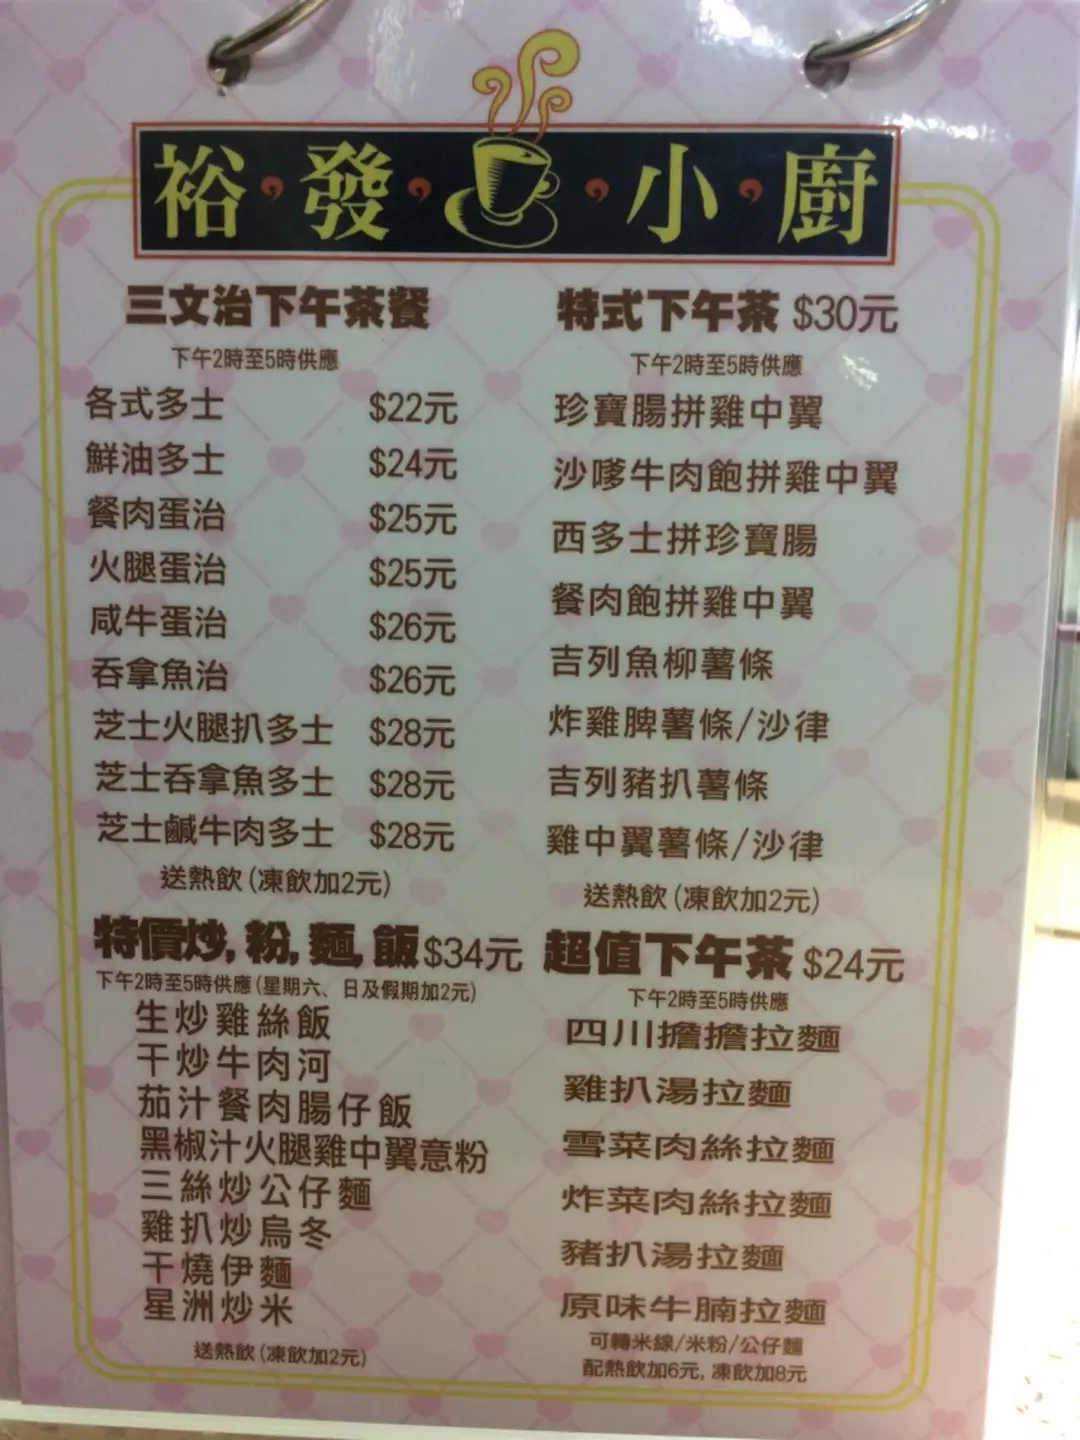 裕發小廚
三文治下午茶餐
下午2時至5時供應
各式多士 $22元
鮮油多士 $24元
餐肉蛋治 $25元
火腿蛋治 $25元
咸牛蛋治 $26元
吞拿魚治 $26元
芝士火腿扒多士 $28元
芝士吞拿魚多士 $28元
芝士鹹牛肉多士 $28元
送熱飲(凍飲加2元)
特式下午茶 $30元
下午2時至5時供應
珍寶腸拼雞中翼
沙嗲牛肉飽拼雞中翼
西多士拼珍寶腸
餐肉飽拼雞中翼
吉列魚柳薯條
炸雞脾薯條/沙律
吉列豬扒薯條
雞中翼薯條/沙律
送熱飲(凍飲加2元)
特價炒,粉,麵,飯 $34元
下午2時至5時供應(星期六、日及假期加2元)
生炒雞絲飯
干炒牛肉河
茄汁餐肉腸仔飯
黑椒汁火腿雞中翼意粉
三絲炒公仔麵
雞扒炒烏冬
干燒伊麵
星洲炒米
送熱飲(凍飲加2元)
超值下午茶 $24元
下午2時至5時供應
四川擔擔拉麵
雞扒湯拉麵
雪菜肉絲拉麵
炸菜肉絲拉麵
豬扒湯拉麵
原味牛腩拉麵
可轉米線/米粉/公仔麵
配熱飲加6元,凍飲加8元